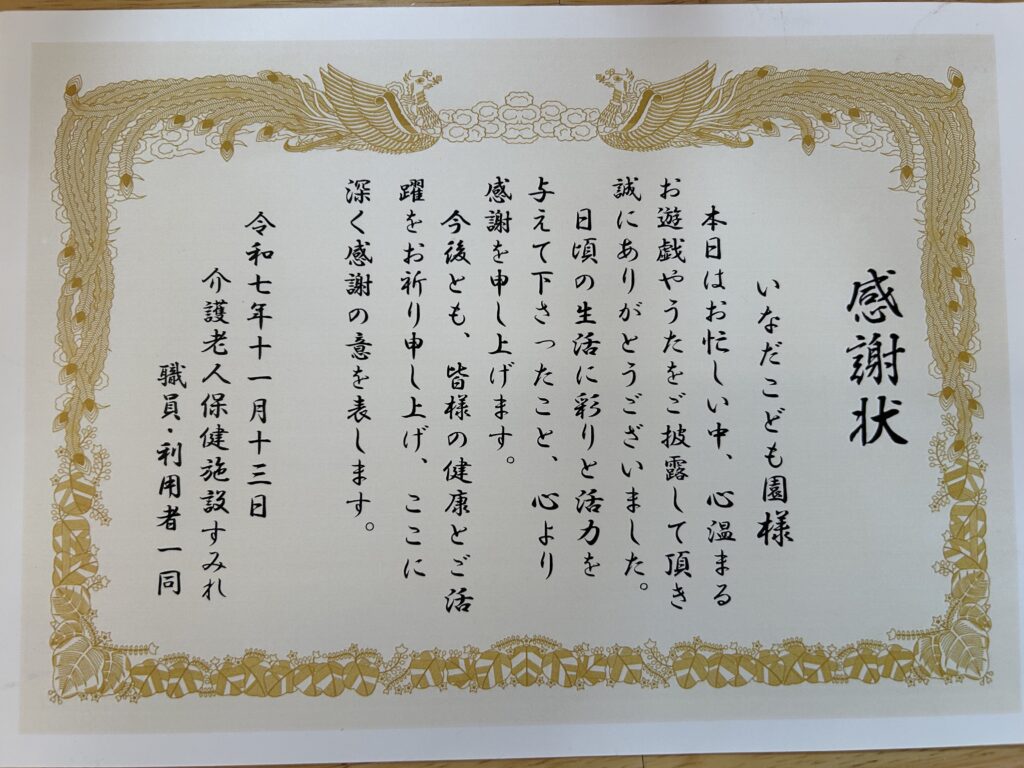 感謝状
いなだこども園様
本日はお忙しい中、心温まる
お遊戯やうたをご披露して頂き
誠にありがとうございました。
日頃の生活に彩りと活力を
与えて下さったこと、心より
感謝を申し上げます。
今後とも、皆様の健康とご活
躍をお祈り申し上げ、ここに
深く感謝の意を表します。
令和七年十一月十三日
介護老人保健施設すみれ
職員・利用者一同